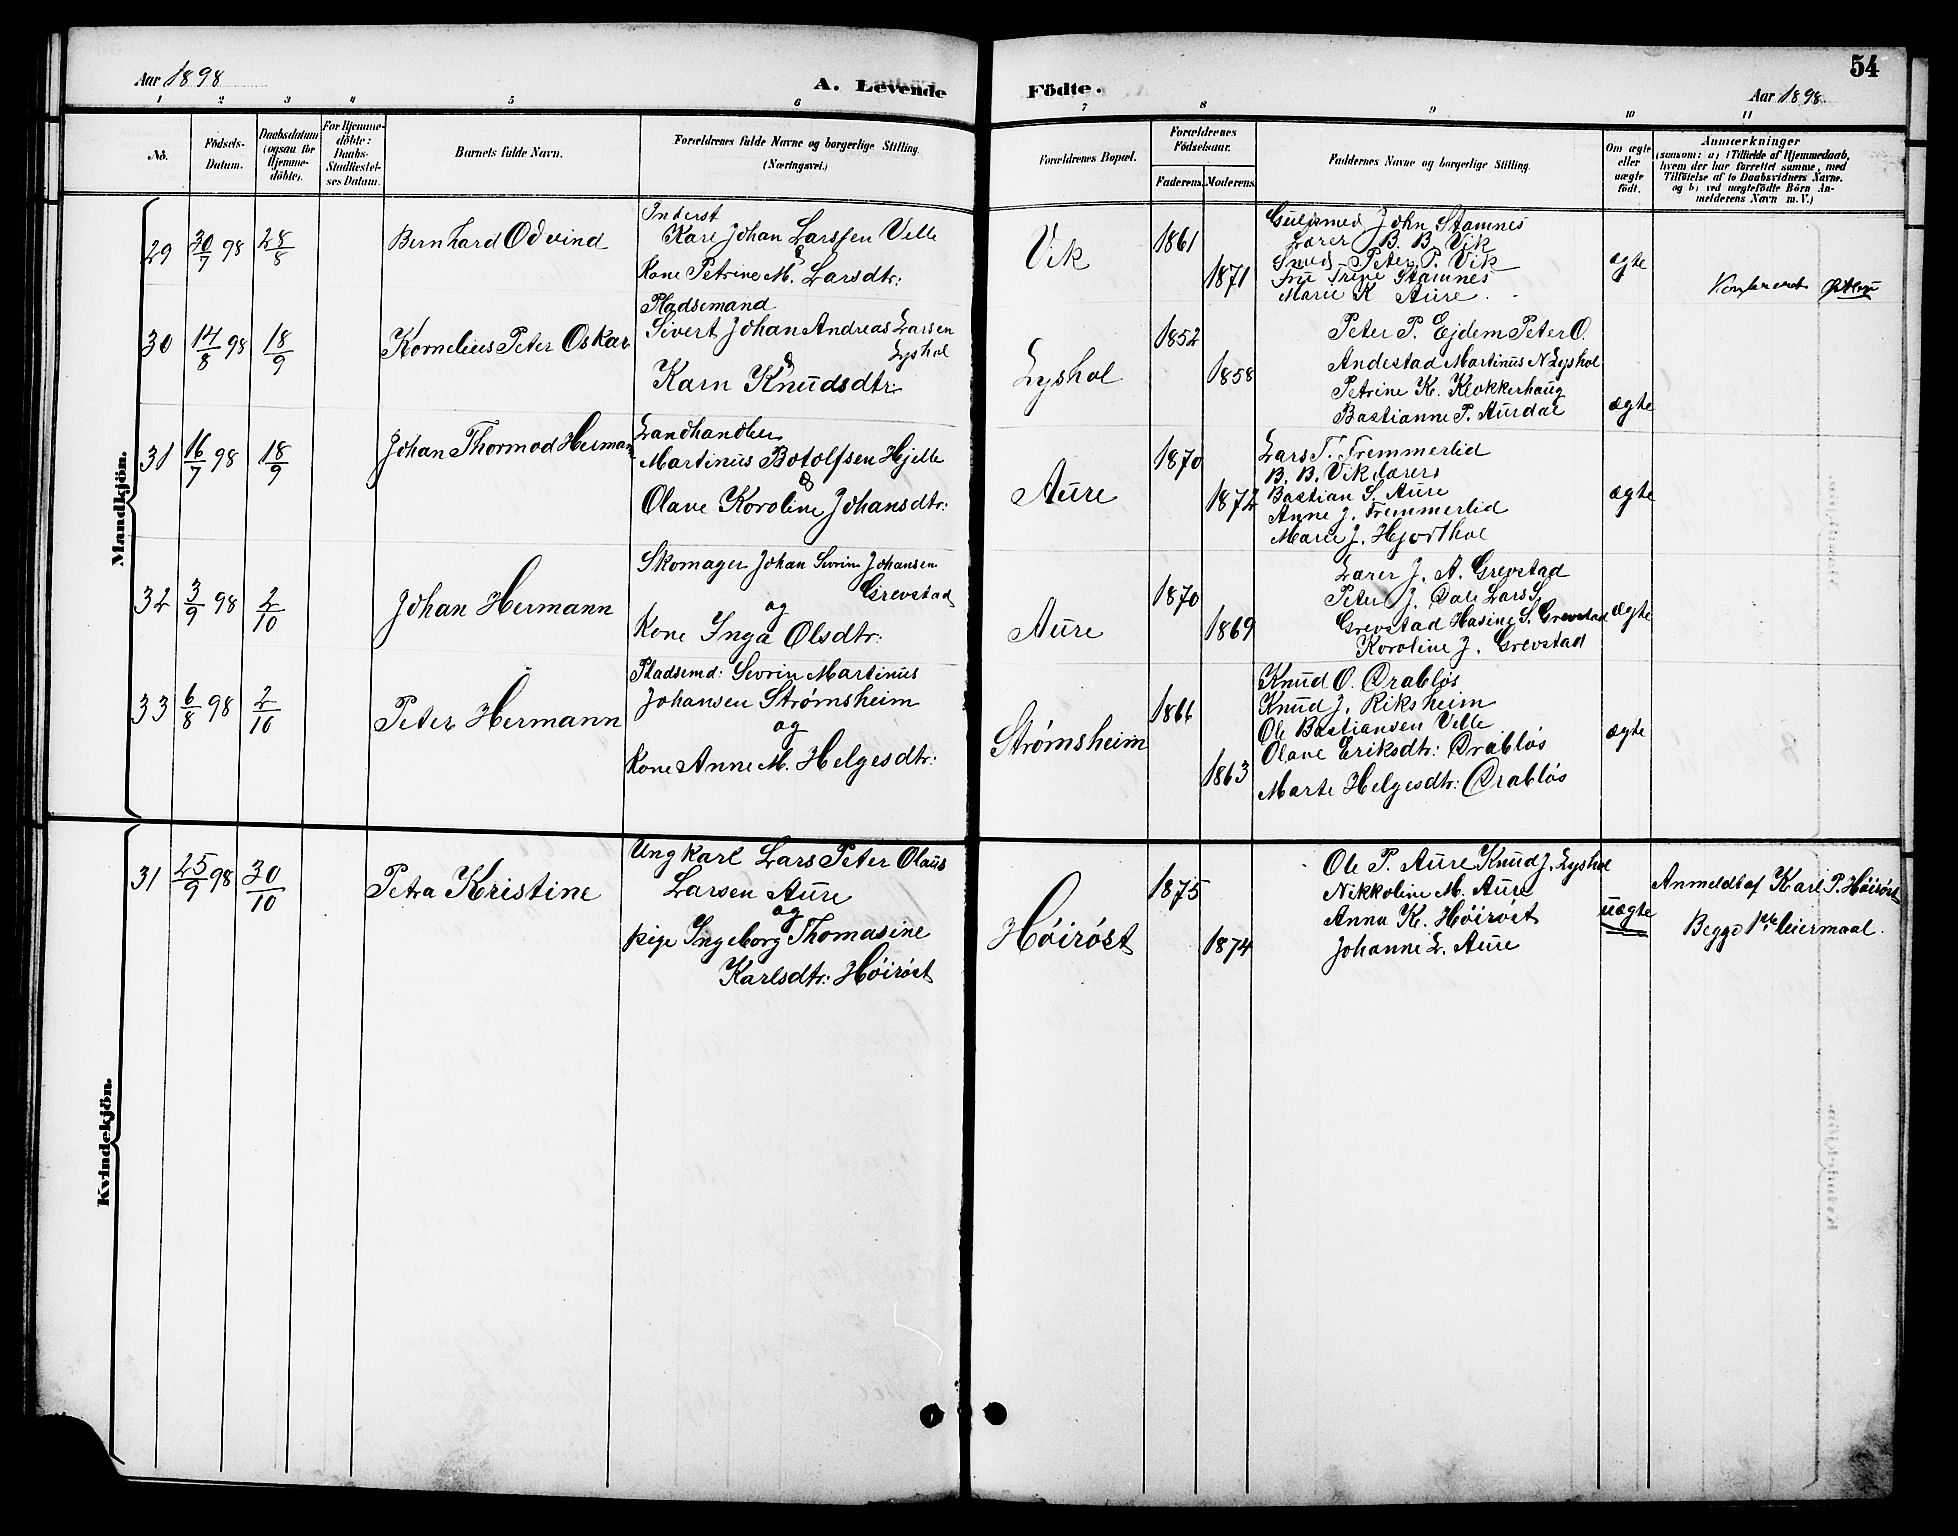 54
Aar 1898
A. Levende Födte.
Aar 1898
1 2 3 4 5 6 7 8 9 10 11
No.
Födsels-
Datum.
Daabsdatum
(ogsaa for
Hjemme-
döbte).
For Hjemme-
döbte:
Daabs-
Stadfæstel-
ses Datum.
Barnets fulde Navn.
Forældrenes fulde Navne og borgerlige Stilling.
(Næringsvei.)
Forældrenes Bopæl.
Forældrenes
Födselsaar.
Faderens. Moderens.
Faddernes Navne og borgerlige Stilling.
Om ægte
eller
uægte
födt.
Anmærkninger
(saasom: a) i Tilfælde af Hjemmedaab,
hvem der har forrettet samme, med
Tilföielse af to Daabsvidners Navne.
og b) ved uægtefödte Börn An-
melderens Navn m. V.)
Mandkjön.
29 30/7 98 28/8
Bernhard Odvind
Inderst
Karl Johan Larssen Velle
&
Kone Petrine M. Larsdtr:
Vik
1861
1871
Gulsmed John Stamnes
Lærer B. B. Vik
Smed Peter P. Vik
Fru Trine Stamnes
Marie K Aure
ægte
30 14/8 98 18/9
Kornelius Peter Oskar
Pladsemand
Sivert Johan Andreas Larsen
Lyshol
&
Karn Knudsdtr
Lyshol
1852
1858
Peter P. Ejdem Peter O.
Andestad Martinus N Lyshol
Petrine K. Klokkerhaug
Bastianne P. Aurdal
ægte
31 16/7 98 18/9
Johan Thormod Herman
Landhandler
Martinus Botolfsen Hjelle
&
Olave Koroline Johansdtr:
Aure
1870
1872
Lars T. Fremmerlid
B. B. Vik lærer
Bastian S. Aure
Anne J. Fremmerlid
Marie J. Hjorthol
ægte
32 3/9 98 2/10
Johan Hermann
Skomager Johan Sivrin Johansen
Grevstad
og
Kone Inga Olsdtr:
Aure
1870
1869
Lærer J. A. Grevstad
Peter J. Dale Lars S.
Grevstad Hasine S. Grevstad
Koroline J. Grevstad
ægte
33 6/8 98 2/10
Peter Hermann
Pladsemd: Sivrin Martinus
Johansen Strømsheim
og
Kone Anne M. Helgesdtr:
Strømsheim
1866
1863
Knud O. Drabløs
Knud J. Riksheim
Ole Bastiansen Velle
Olave Eriksdtr: Drabløs
Marte Helgesdtr: Drabløs
ægte
Kvindekjön.
31 25/9 98 30/10
Petra Kristine
Ungkarl Lars Peter Olaus
Larsen Aure
og
pige Ingeborg Thomasine
Karlsdtr: Høirøst
Høirøst
1875
1874
Ole P. Aure Knud J. Lyshol
Nikkoline M. Aure
Anna K. Høirøst
Johanne L. Aure
uægte
Anmeldt af Karl P. Høirøst
Begge 1ste leiermaal.